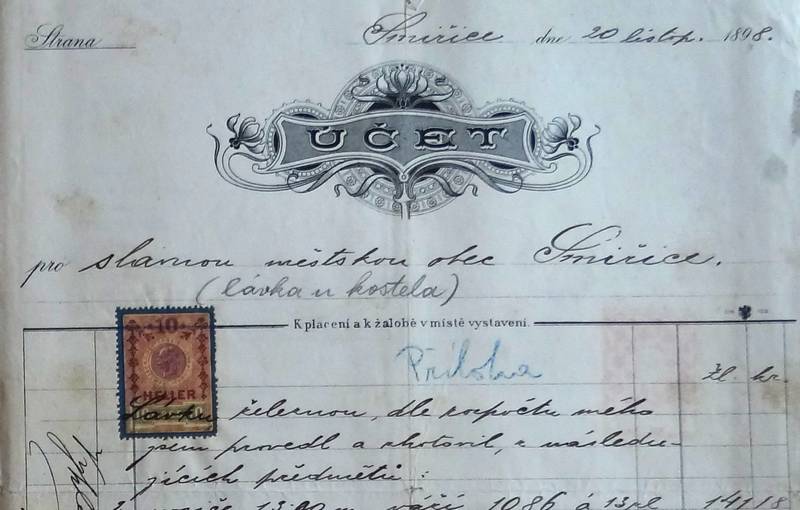 Strana
Smiřice dne 20 listop. 1898.
ÚČET
pro slavnou městskou obec Smiřice.
(lávka u kostela)
K placení a k žalobě v místě vystavení.
10
HELLER
Příloha
zl. kr.
Lávku železnou, dle rozpočtu mého
jsem provedl a zhotovil, z násedu-
jících předmětů:
2 nosiče 13,00 m váží 1086 á 13 zl 141 18